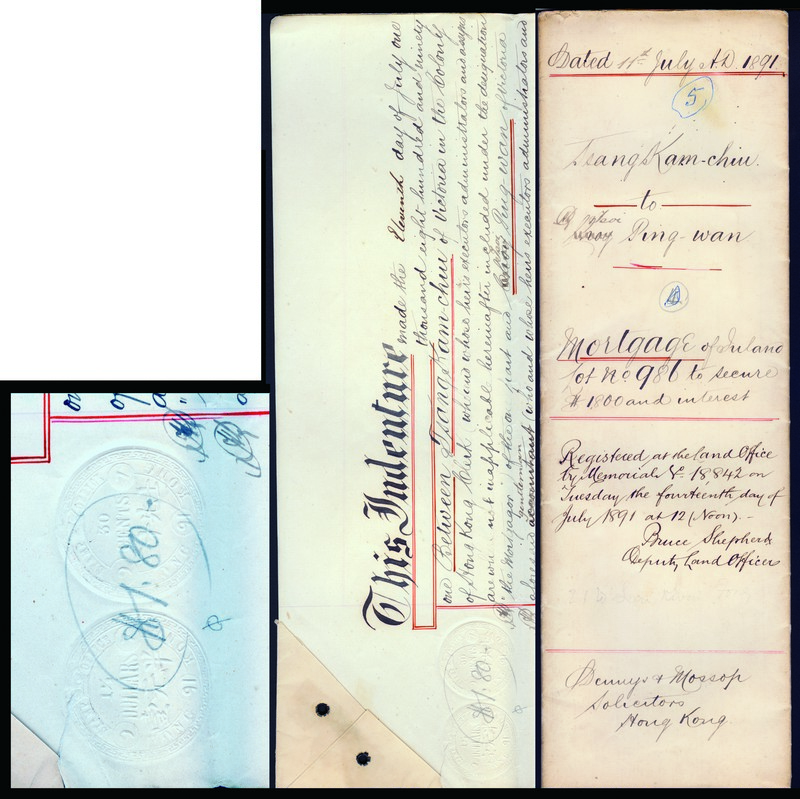 This Indenture made the Eleventh day of July one
thousand eight hundred and ninety
one Between Tsang Kam-chiu of Victoria in the Colony
of Hong Kong Clerk who and whose heirs executors administrators and assigns
are where not inapplicable hereinafter included under the designation
the Mortgagor of the one part and Ping-wan of Victoria
aforesaid accountant who and whose heirs executors administrators and
gentleman
$1.80
Dated 11th July A.D. 1891
5
Tsang Kam-chiu.
to
Ping-wan
Mortgage of Inland
lot No. 986 to secure
$1800 and interest
Registered at the Land Office
by Memorial No. 18,842 on
Tuesday the fourteenth day of
July 1891 at 12 (Noon).-
Bruce Shepherd
Deputy Land Officer
Dennys & Mossop
Solicitors
Hong Kong.
$1.80
2 DOLLARS
16
16